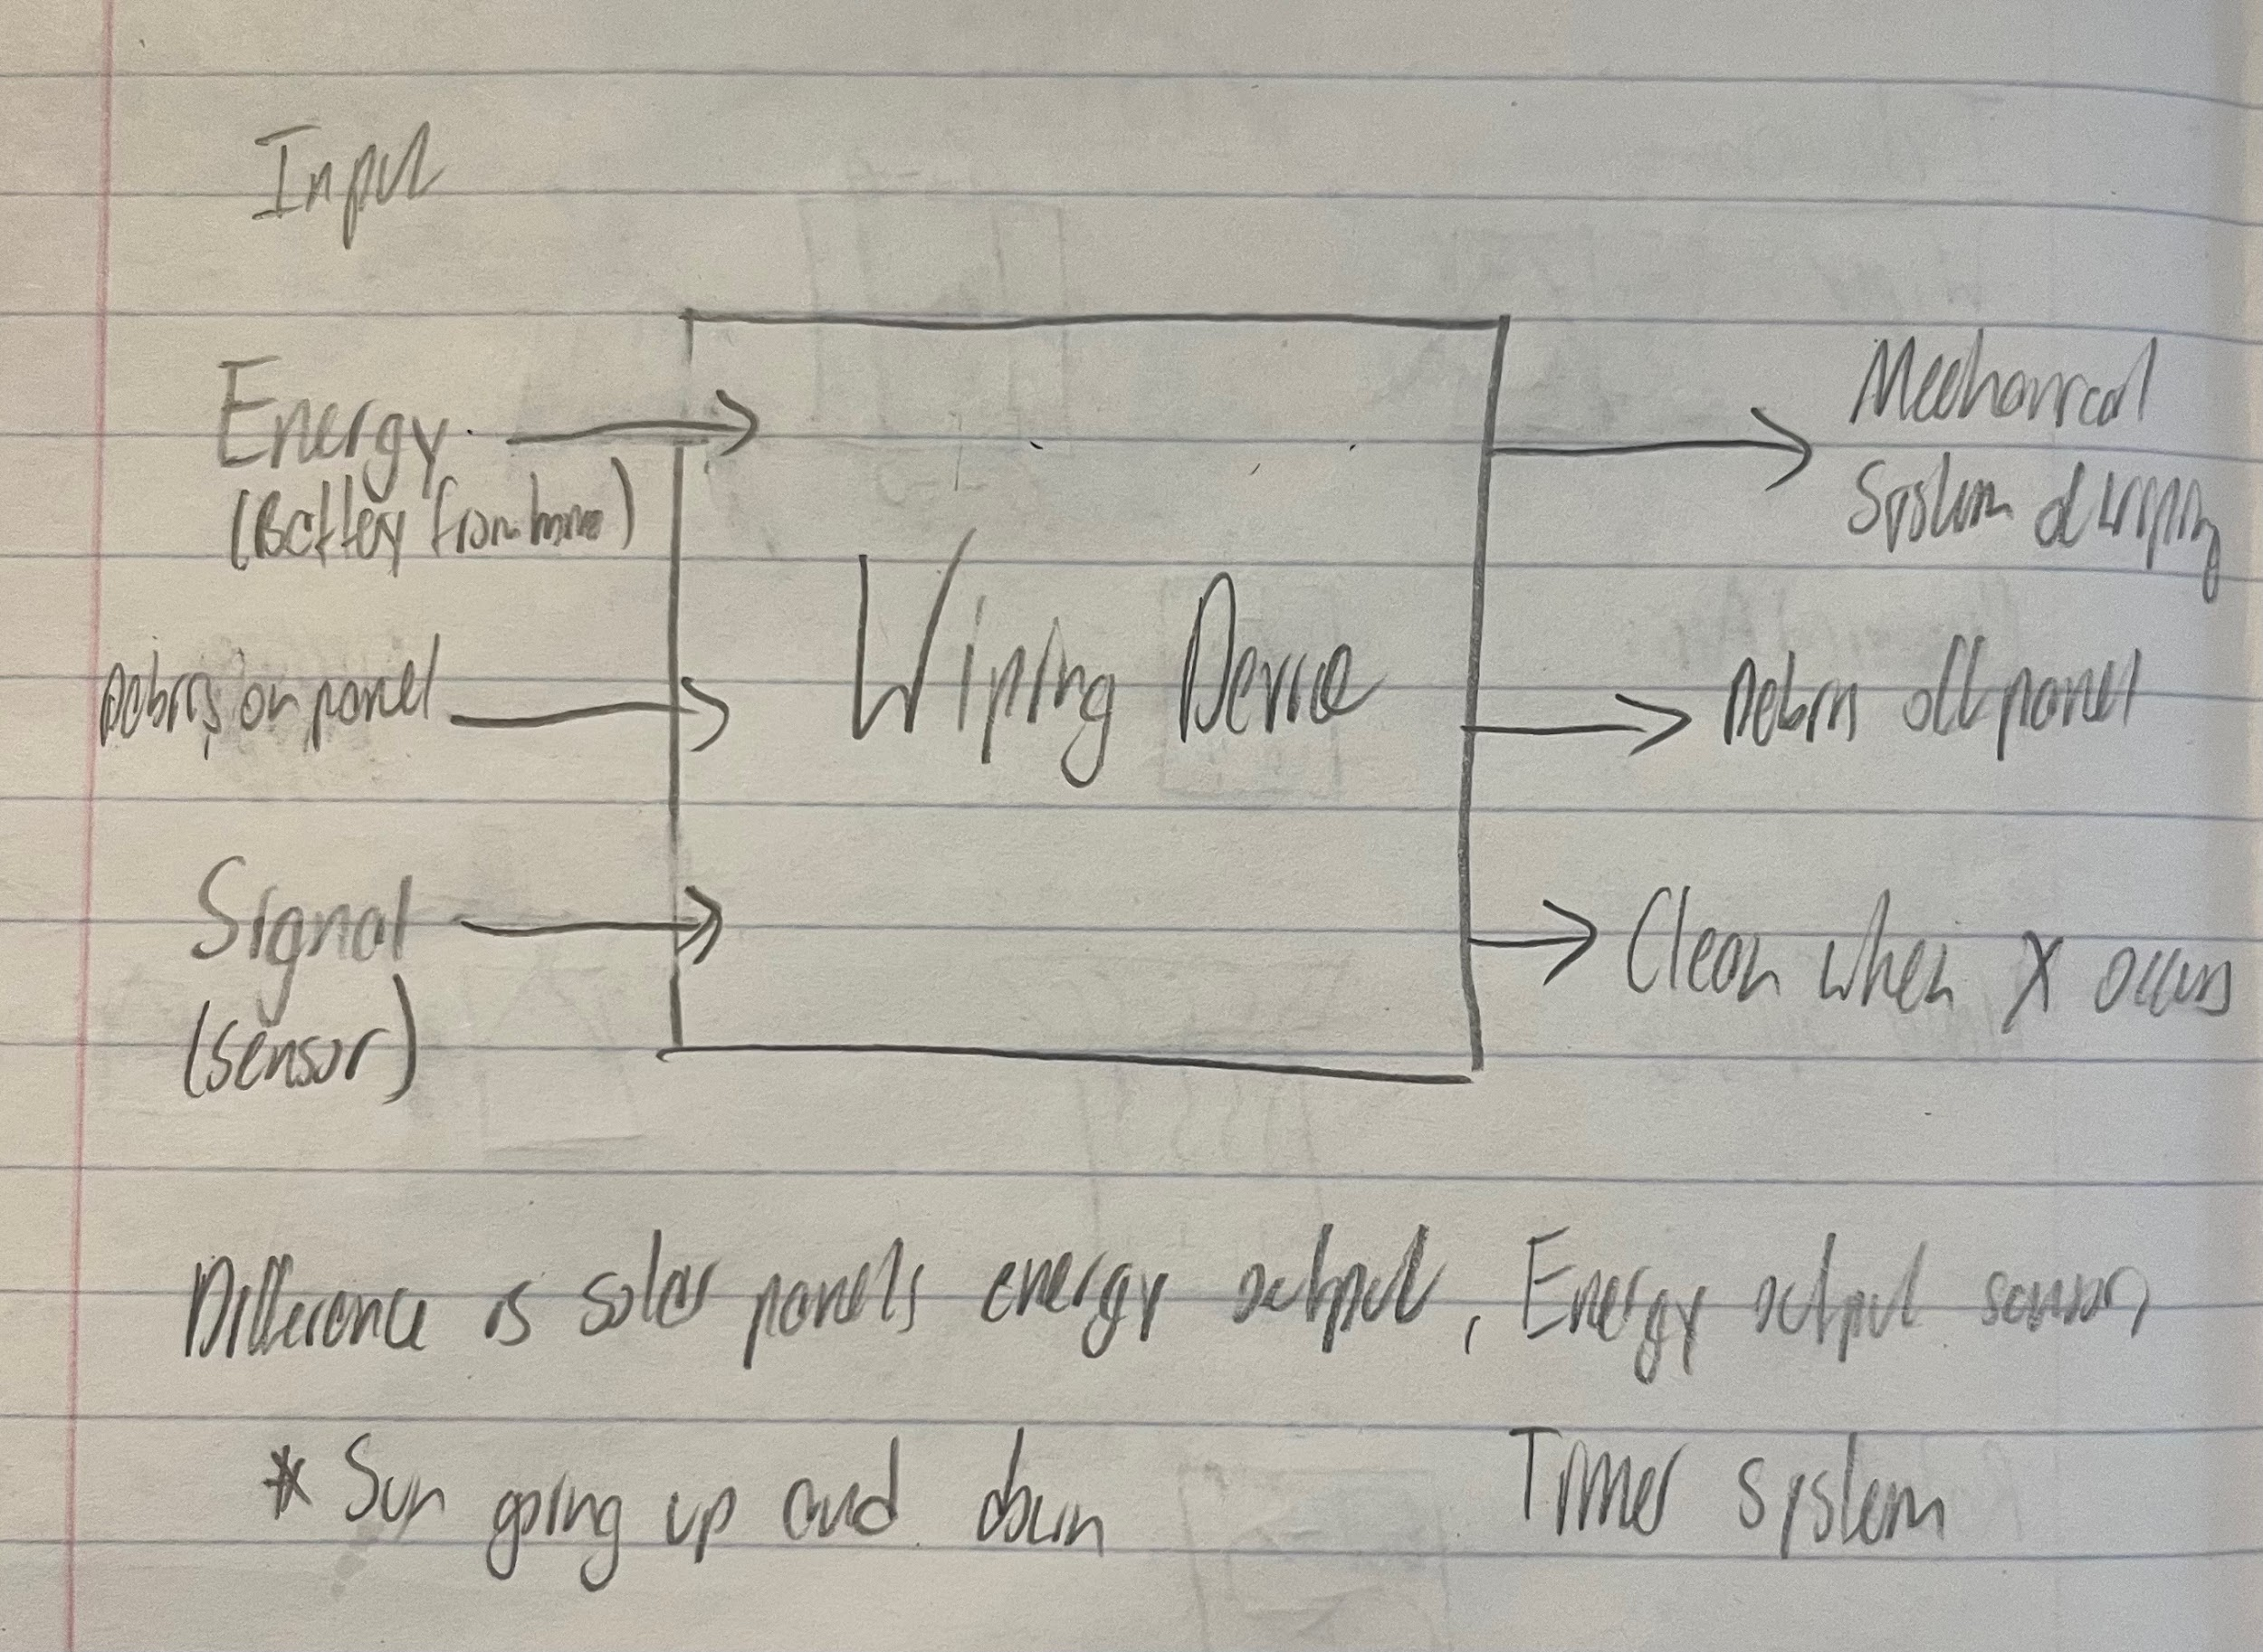 Input
Energy
(Battery from home)
Debris on panel
Signal
(Sensor)
Wiping Device
Mechanical
System of wiping
Debris off panel
Clean when X occurs
Difference is solar panels energy output, Energy output sensor,
* Sun going up and down
Timer system